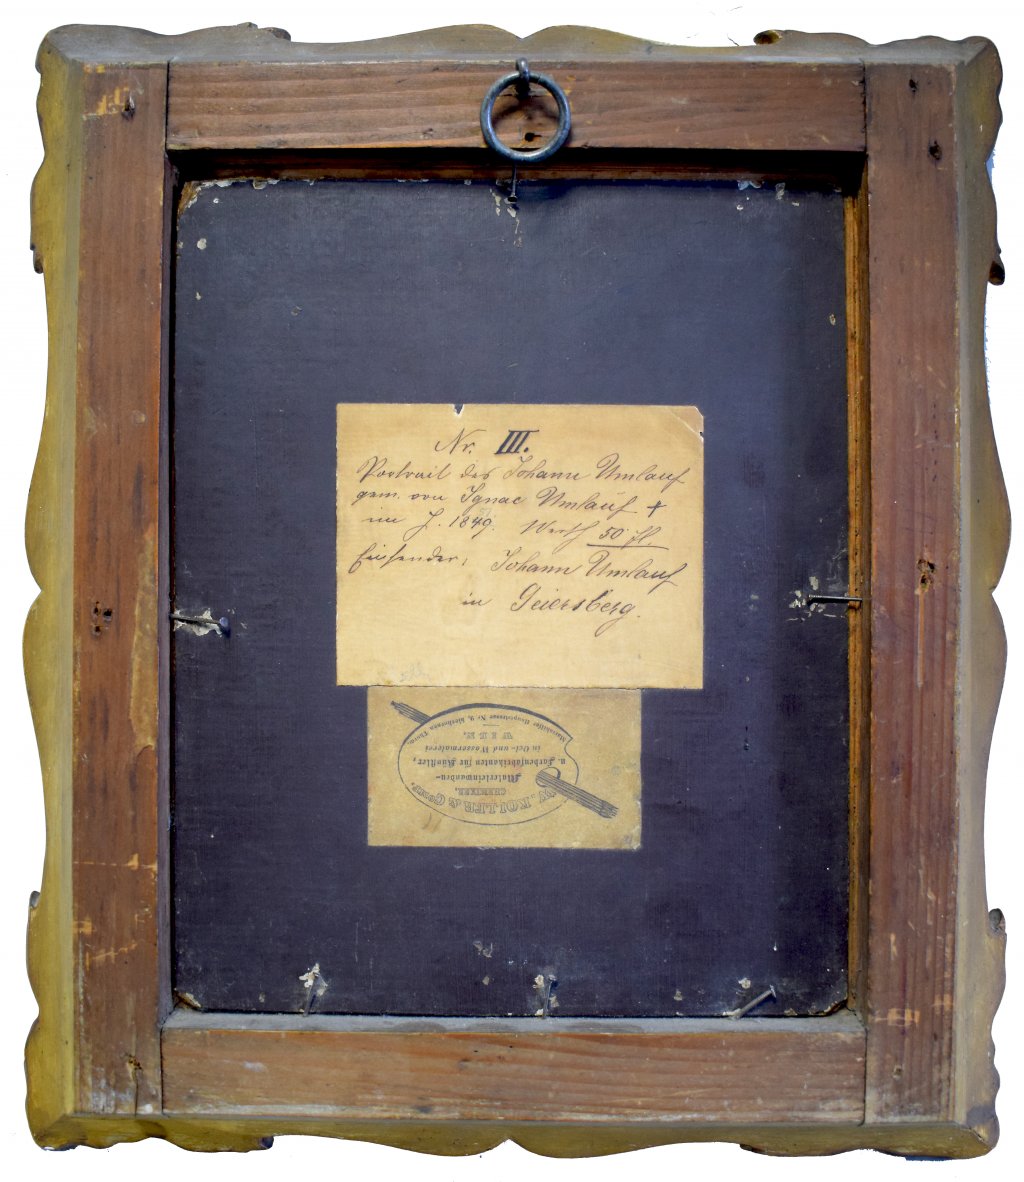 Nr. III.
Portrait des Johann Umlauf
gem. von Ignac Umlauf +
im J. 1849. Werth 50 fl.
Einsender, Johann Umlauf
in Geiersberg.
W. KOLLER & Comp.
CHEMIKER.
Malerleinwanden-
u. Farbenfabrikanten für Künstler,
in Oel- und Wassermalerei
WIEN.
Mariahilfer Hauptstrasse Nr. 9,